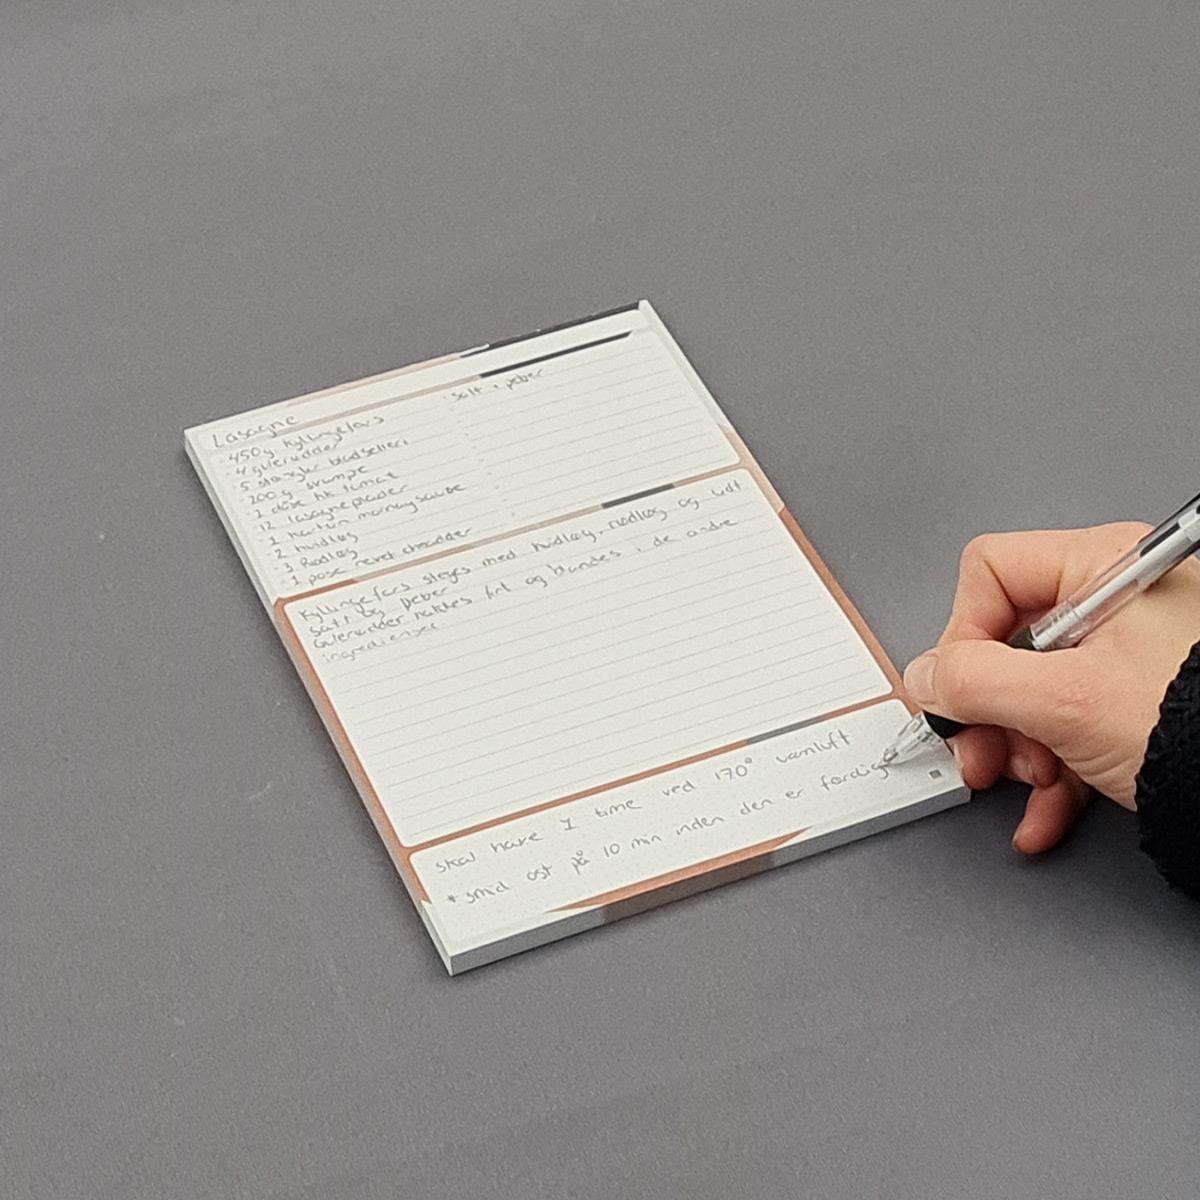 Lasagne
· 450g kyllingefars
· 4 gulerødder
· 5 stængler bladselleri
· 200 g svampe
· 1 dåse hk tomat
· 12 lasagneplader
· 1 karton mornaysauce
· 2 hvidløg
· 3 Rødløg
· 1 pose revet cheddar
· salt + peber
Kyllingefars steges med hvidløg, rødløg og lidt
salt og peber
Gulerødder hakkes fint og blandes i de andre
ingredienser
skal have 1 time ved 170° varmluft
* smid ost på 10 min inden den er færdig